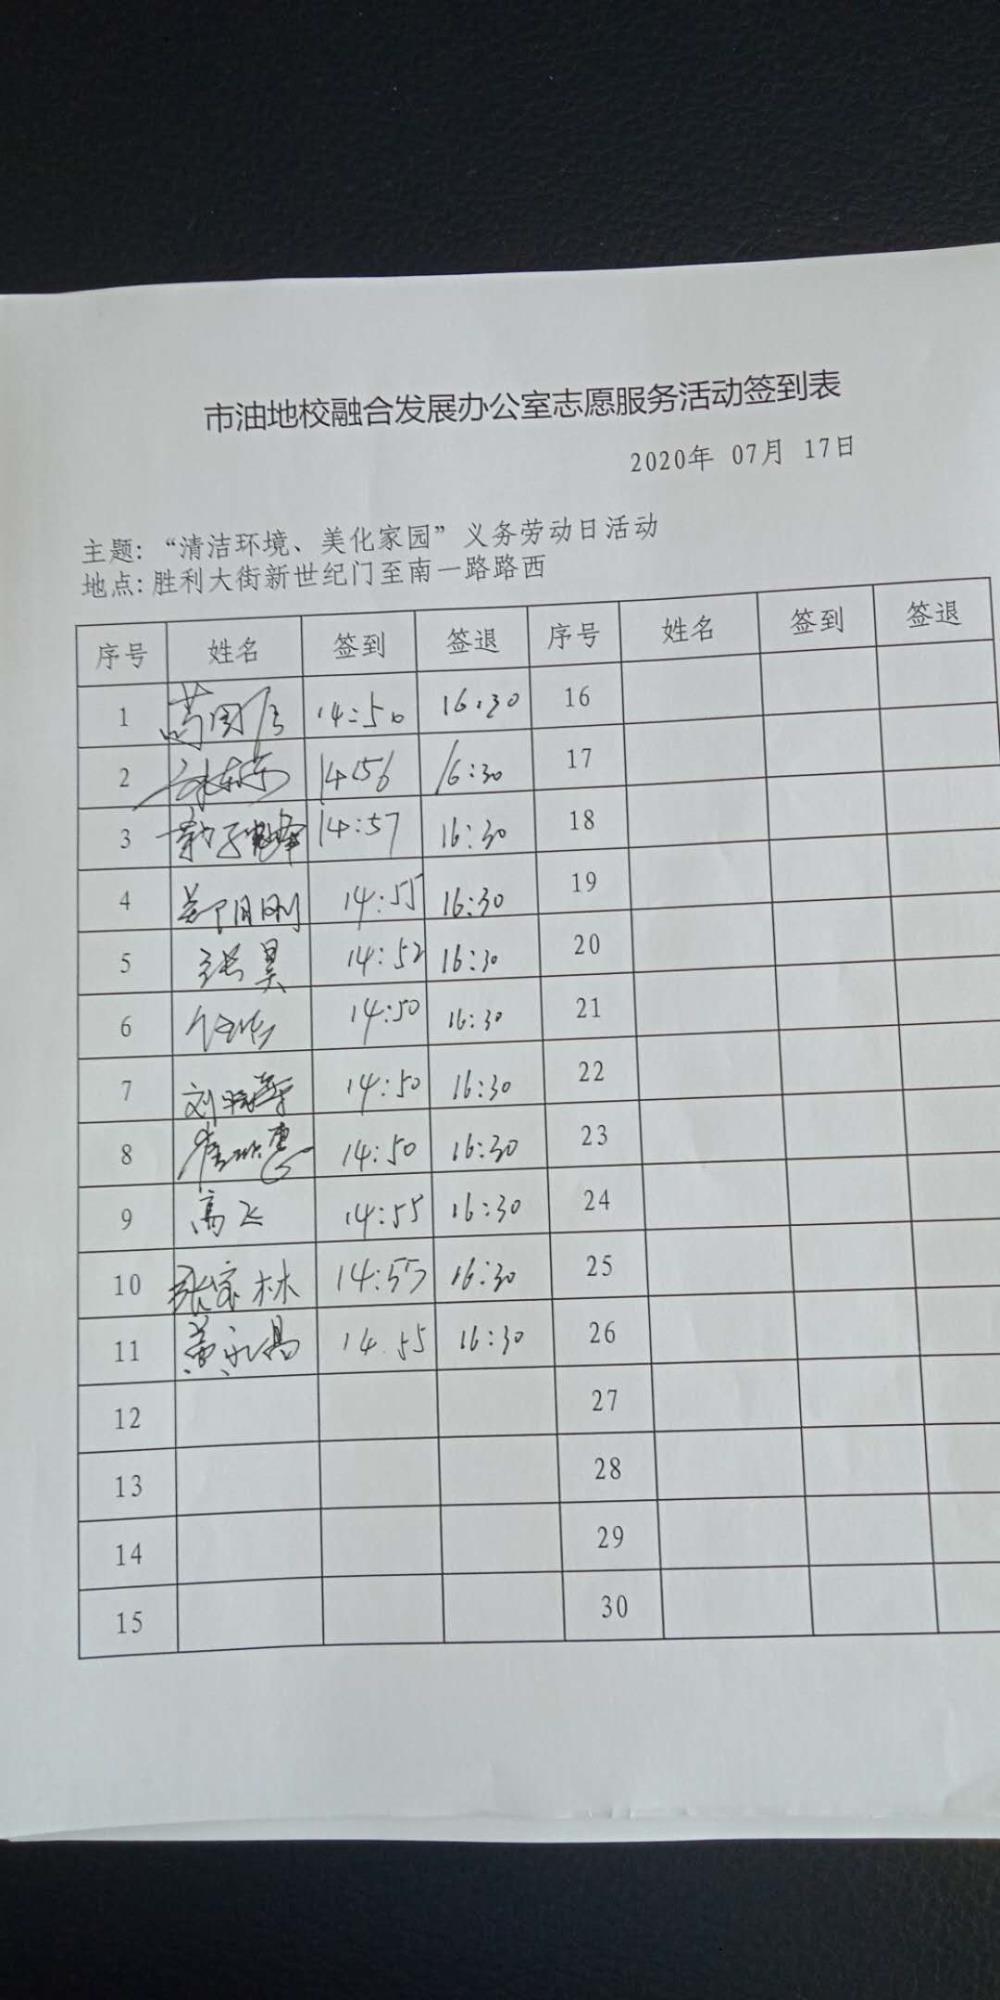 市油地校融合发展办公室志愿服务活动签到表
2020年 07月 17日
主题：“清洁环境、美化家园”义务劳动日活动
地点：胜利大街新世纪门至南一路路西
序号 姓名 签到 签退 序号 姓名 签到 签退
1 14:50 16:30 16
2 14:56 16:30 17
3 14:57 16:30 18
4 郑月刚 14:55 16:30 19
5 张昊 14:52 16:30 20
6 14:50 16:30 21
7 刘晓 14:50 16:30 22
8 14:50 16:30 23
9 高飞 14:55 16:30 24
10 张家林 14:55 16:30 25
11 黄永昌 14.55 16:30 26
12 27
13 28
14 29
15 30